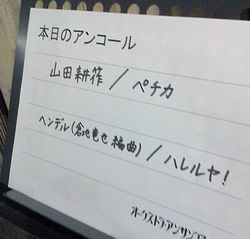 本日のアンコール
山田耕筰 / ペチカ
ヘンデル(倉地竜也 編曲) / ハレルヤ!
オーケストラ・アンサンブ